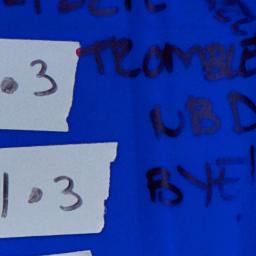 .3
TROMBLE
NBD
1.3
BYE!